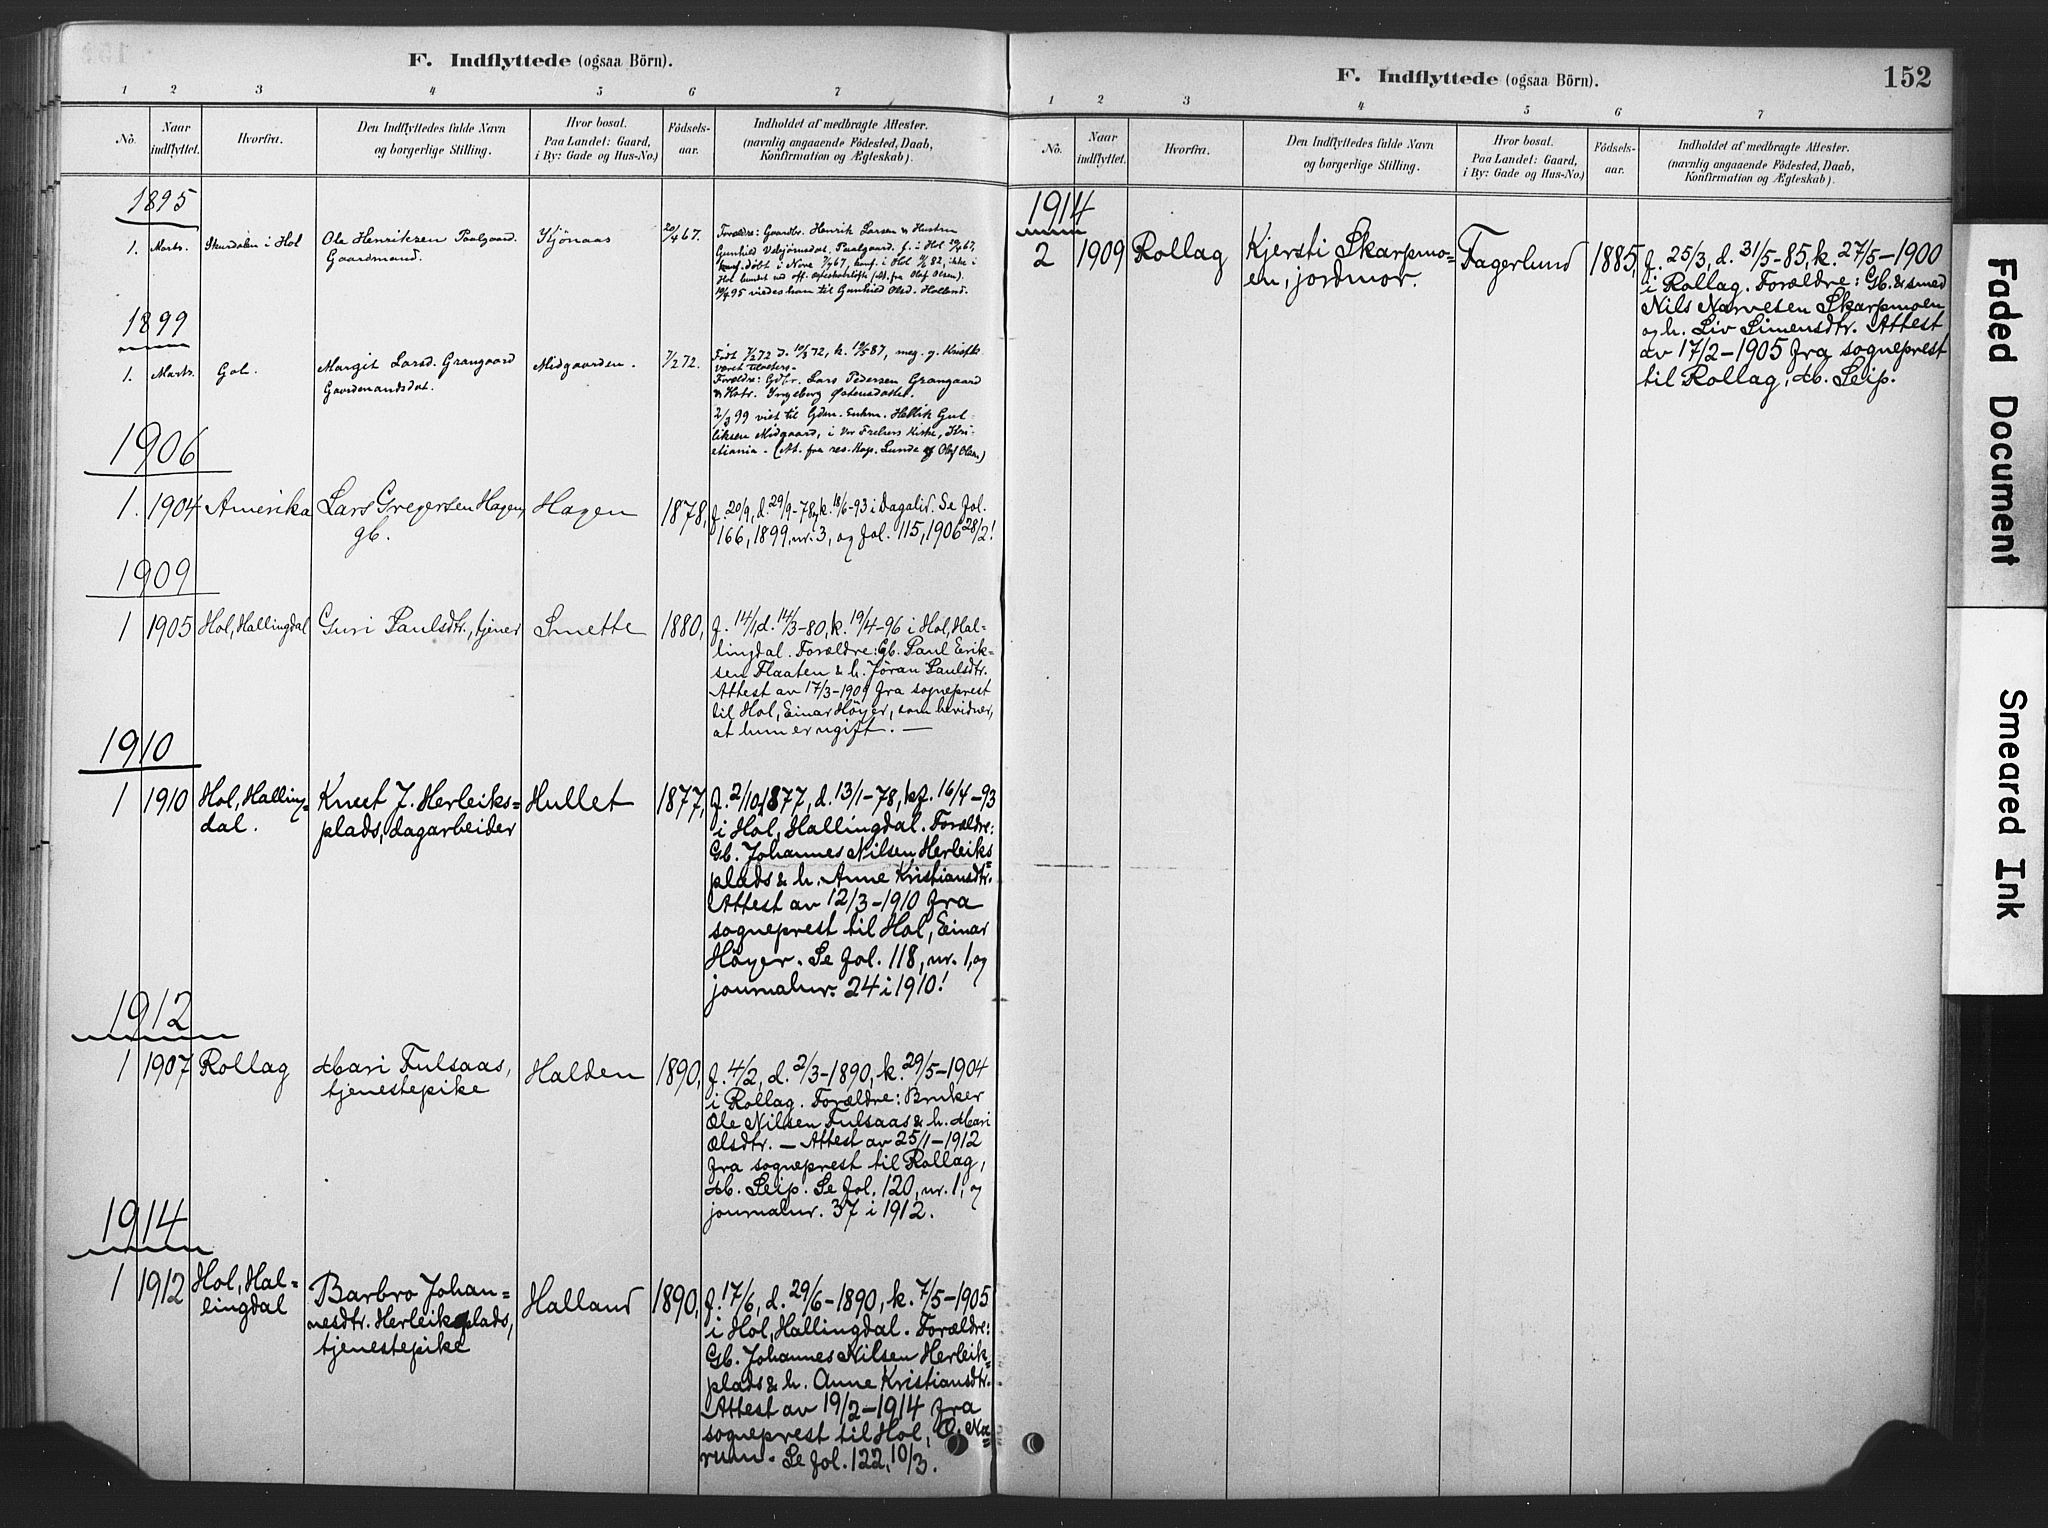 F. Indflyttede (ogsaa Börn).
1 2 3 4 5 6 7
No. Naar indflyttet. Hvorfra. Den Indflyttedes fulde Navn og borgerlige Stilling. Hvor bosat. Paa Landet: Gaard, i By: Gade og Hus-No.) Födsels-aar. Indholdet af medbragte Attester. (navnlig angaaende Födested, Daab, Konfirmation og Ægteskab).
1895
1. Marts. Skurdalen i Hol Ole Henriksen Paalgaard. Kjönaas 20/4 67. Forældre: Gaardbr. Henrik Larsen & Hustru
Gaardmand. Gunhild
döbt i Nore
1899
1. Marts. Gol. Margit Larsd. Grangaard Midgaarden. 7/2 72. Födt 7/2 72 D. 10/3 72, k.
Gaardmandsdat.
Lars Pedersen Grangaard
& Hstr. Ingeborg
2/3 99 viet til Gdm. Enkm. Hellik Gul-
liksen Midgaard, i Vor Frelsers Kirke, Kri-
stiania. (Att. fra res. Kap. Lunde & Olaf Olsen)
1906
1. 1904 Amerika Lars Gregersen Hagen, Hagen 1878, f. 20/9, d. 29/9-78, k. 18/6-93 i Dagalid. Se fol.
gb. 166, 1899, nr. 3, og fol. 115, 1906 28/2!
1909
1 1905 Hol, Hallingdal Guri Paulsdtr., tjener Smette 1880, f. 14/1, d. 14/3-80, k. 19/4-96 i Hol, Hal-
lingdal. Forældre: Gb. Paul Erik-
sen Flaaten & h. Jöran Paulsdtr.
Attest av 17/3-1909 fra sogneprest
til Hol, Einar Höyer, som bevidner,
at hun er ugift. —
1910
1 1910 Hol, Halling- Knut J. Herleiks= Hullet 1877, f. 2/10 1877, d. 13/1-78, kf. 16/4-93
dal. plads, dagarbeider i Hol, Hallingdal. Forældre:
Gb. Johannes Nilsen Herleiks=
plads & h. Anne Kristiansdtr.
Attest av 12/3-1910 fra
sogneprest til Hol, Einar
Höyer. Se fol. 118, nr. 1, og
journalnr. 24 i 1910!
1912
1 1907 Rollag Mari Fulsaas, Halden 1890, f. 4/2, d. 2/3-1890, k. 29/5-1904
tjenestepike i Rollag. Forældre: Bruker
Ole Nilsen Fulsaas & h. Mari
Olsdtr. — Attest av 25/1-1912
fra sogneprest til Rollag,
M. Seip. Se fol. 120, nr. 1, og
journalnr. 37 i 1912.
1914
1 1912 Hol, Hal= Barbro Johan= Halland 1890, f. 17/6, d. 29/6-1890, k. 7/5-1905
lingdal nesdtr. Herleiksplads, i Hol, Hallingdal. Forældre:
tjenestepike Gb. Johannes Nilsen Herleik-
plads & h. Anne Kristiansdtr.
Attest av 19/2-1914 fra
sogneprest til Hol, O. Na=
rum. Se fol. 122, 10/3.
F. Indflyttede (ogsaa Börn). 152
1 2 3 4 5 6 7
No. Naar indflyttet. Hvorfra. Den Indflyttedes fulde Navn og borgerlige Stilling. Hvor bosat. Paa Landet: Gaard, i By: Gade og Hus-No.) Födsels-aar. Indholdet af medbragte Attester. (navnlig angaaende Födested, Daab, Konfirmation og Ægteskab).
1914
2 1909 Rollag Kjersti Skarpmo= Fagerlund 1885, f. 25/3, d. 31/5-85, k. 27/5-1900
en, jordmor. i Rollag. Forældre: Gb. & smed
Nils Narvesen Skarpmoen
og h. Liv Simensdtr. Attest
av 17/2-1905 fra sogneprest
til Rollag, M. Seip.
Faded Document
Smeared Ink